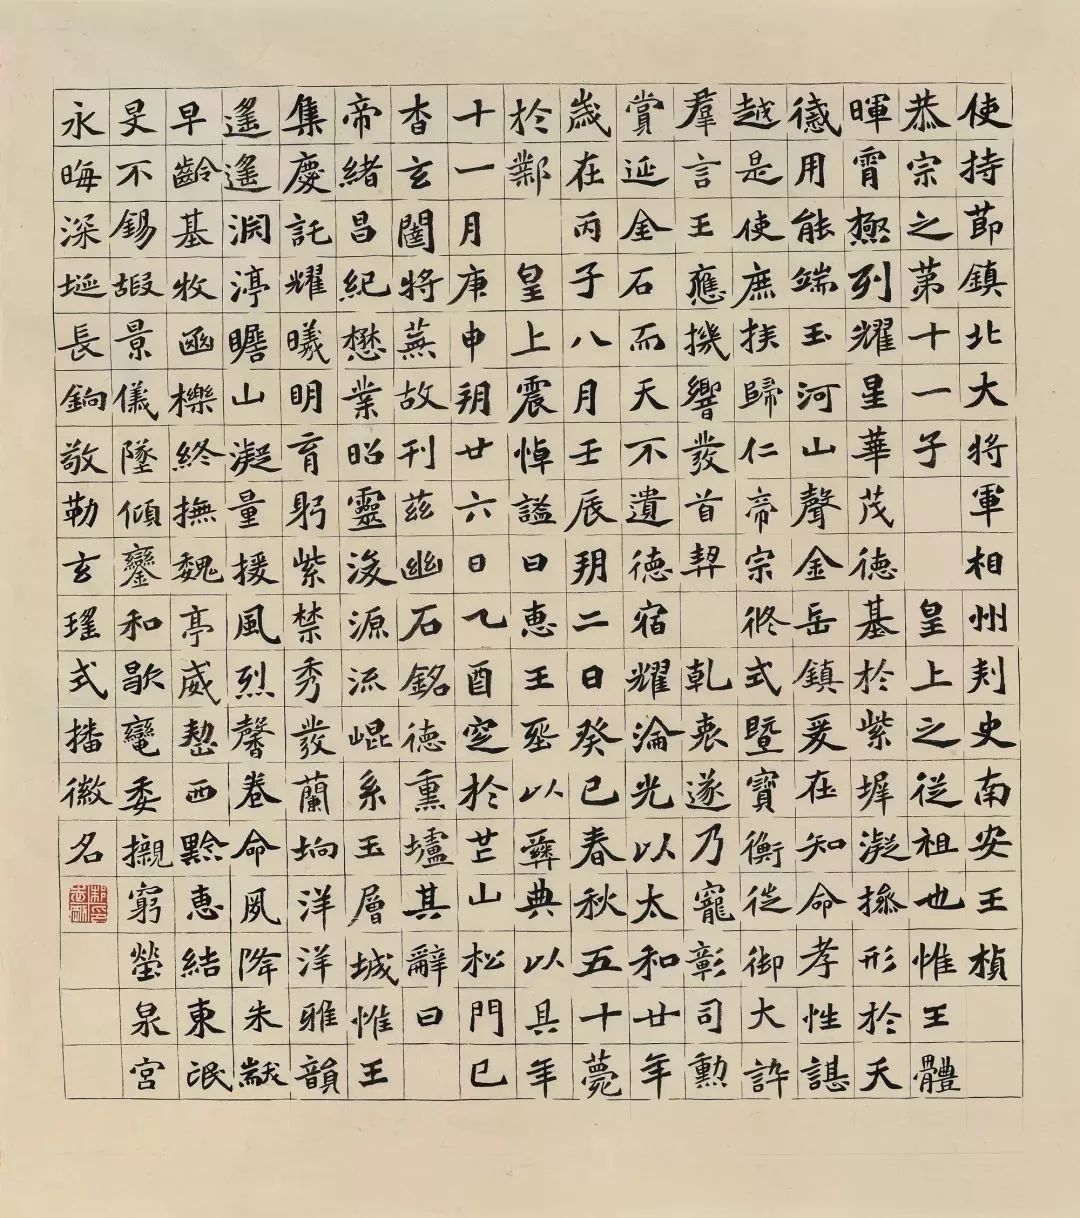 使持節鎮北大將軍相州刾史南安王楨
恭宗之第十一子 皇上之從祖也惟王體
暉霄極列耀星華茂德基於紫墀凝操形於天
感用能端玉河山聲金岳鎮爰在知命孝性諶
越是使庶族歸仁帝宗攸式暨寶衡徙御大訏
羣言王應機響發首契 乾衷遂乃寵彰司勲
賞延金石而天不遺德宿耀淪光以太和廿年
歲在丙子八月壬辰朔二日癸巳春秋五十薨
於鄴 皇上震悼謚曰惠王葬以彝典以其年
十一月庚申朔廿六日乙酉窆於芒山松門已
杳玄闥將蕪故刊茲幽石銘德熏壚其辭曰
帝緒昌紀懋業昭靈浚源流崐系玉層城惟王
集慶託耀曦明育躬紫禁秀發蘭坰洋洋雅韻
遙遙淵渟瞻山凝量援風烈馨卷命夙降朱黻
早齡基牧函櫟終撫魏亭威整西黔惠結東氓
旻不錫嘏景儀墜傾鑾和歇委櫬窮塋泉宮
永晦深埏長銄敬勒玄瑤式播徽名